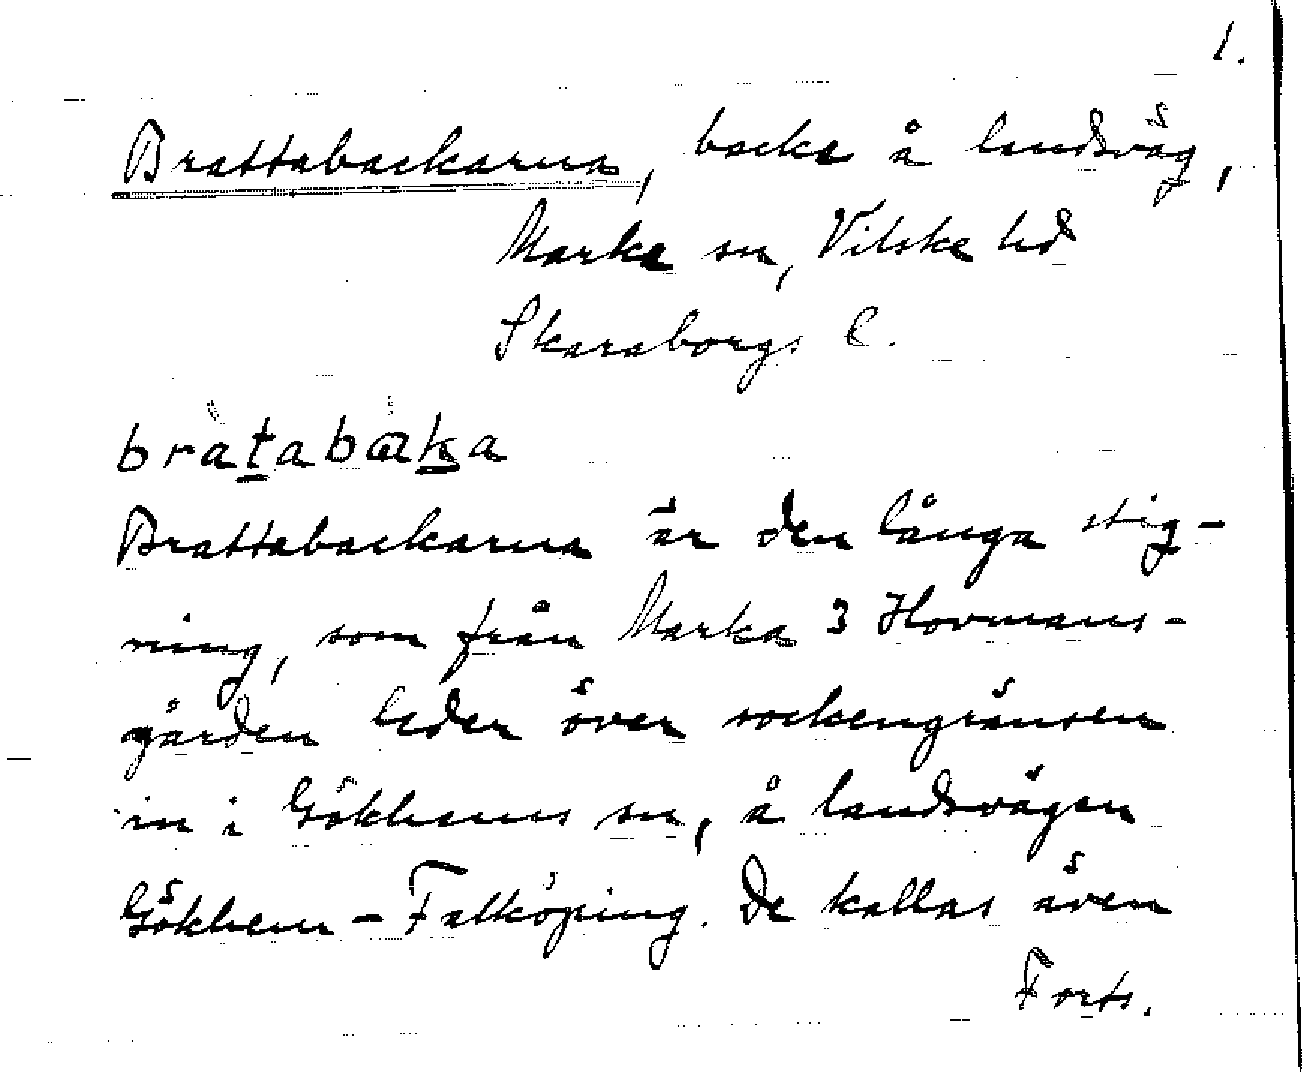 1.
Brattabackarna, backe å landsväg,
Marka sn, Vilske hd
Skaraborgs l.
bràtabàka
Brattabackarna är den långa stig-
ning, som från Marka 3 Hovmans-
gården leder över sockengränsen
in i Gökhems sn, å landsvägen
Gökhem - Falköping. De kallas även
Forts.